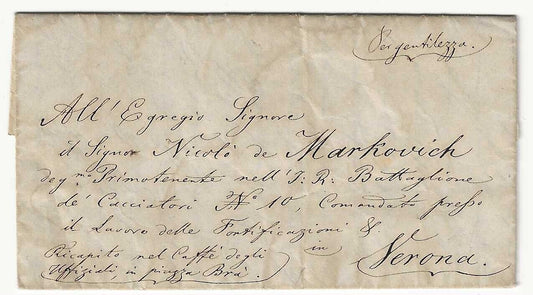 Per gentilezza.
All' Egregio Signore
il Signor Nicolò de Markovich
deg.mo Primotenente nell' I: R: Battaglione
de' Cacciatori No 10, Comandato presso
il Lavoro delle Fortificazioni &.
in
Verona.
Ricapito nel Caffè degli
Uffiziali, in piazza Brà.